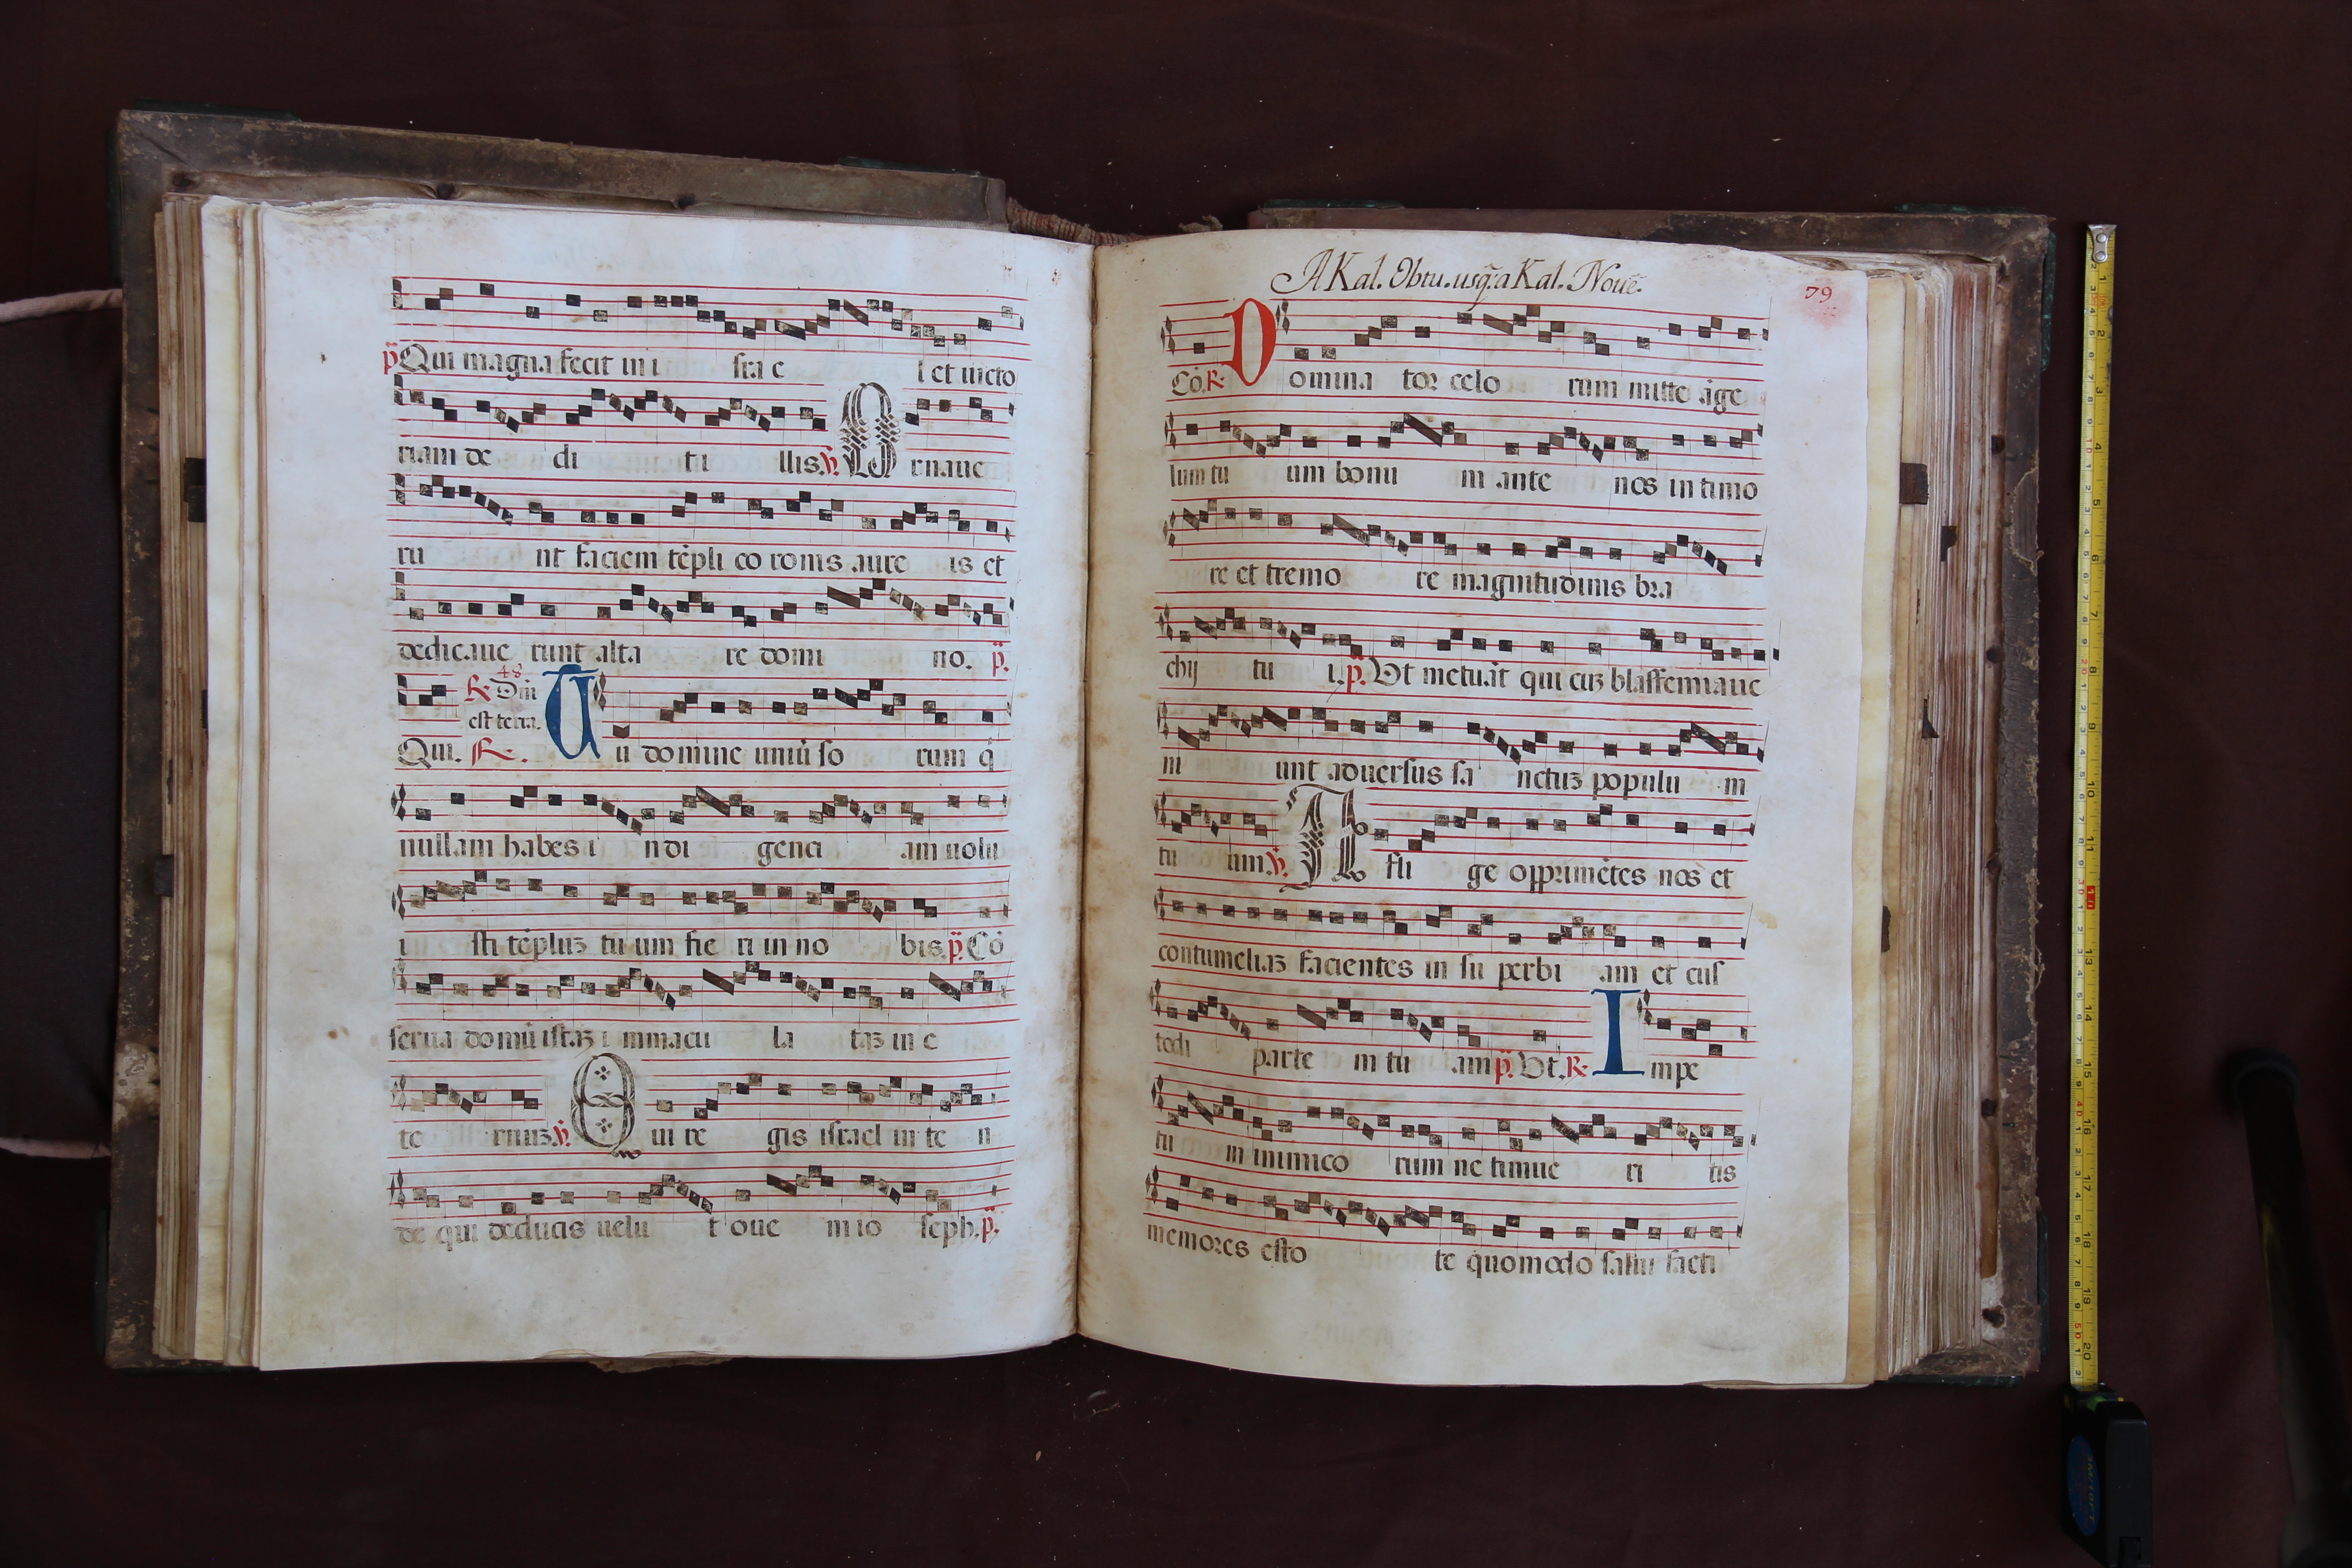 p̃ Qui magna fecit in i sra e l et victo
riam de di tu illis. ℣. Ornave
ru nt faciem tẽpli co ronis aure is et
dedicave runt alta re domi no. p̃.
48
℟. Dñi
est terra.
Qui. ℟. Tu domine univũ so rum q̃
nullam habes i ndi genci am volu
i sti tẽpluz tuum fie ri in no bis. p̃. Cõ
serva domũ istaz i mmacu la taz in e
te rnuz. ℣. Qui re gis israel in te n
de qui deducis velu t ove m io seph. p̃.
A Kal. Obtu. usq̃. a Kal. Noue.
79
Cõ. ℟. Domina tor celo rum mitte ãge
lum tu um bonu m ante nos in timo
re et tremo re magnitudinis bra
chij tu i. p̃. Ut metuãt qui cuz blasfemiave
ni unt adversus sa nctuz populu m
tu um. ℣. A fli ge opprimẽtes nos et
contumeliaz facientes in su perbi am et cus
todi parte m tu am p̃. Ut. ℟. Impe
tu m inimico rum ne timue ri tis
memores esto te quomodo salvi facti